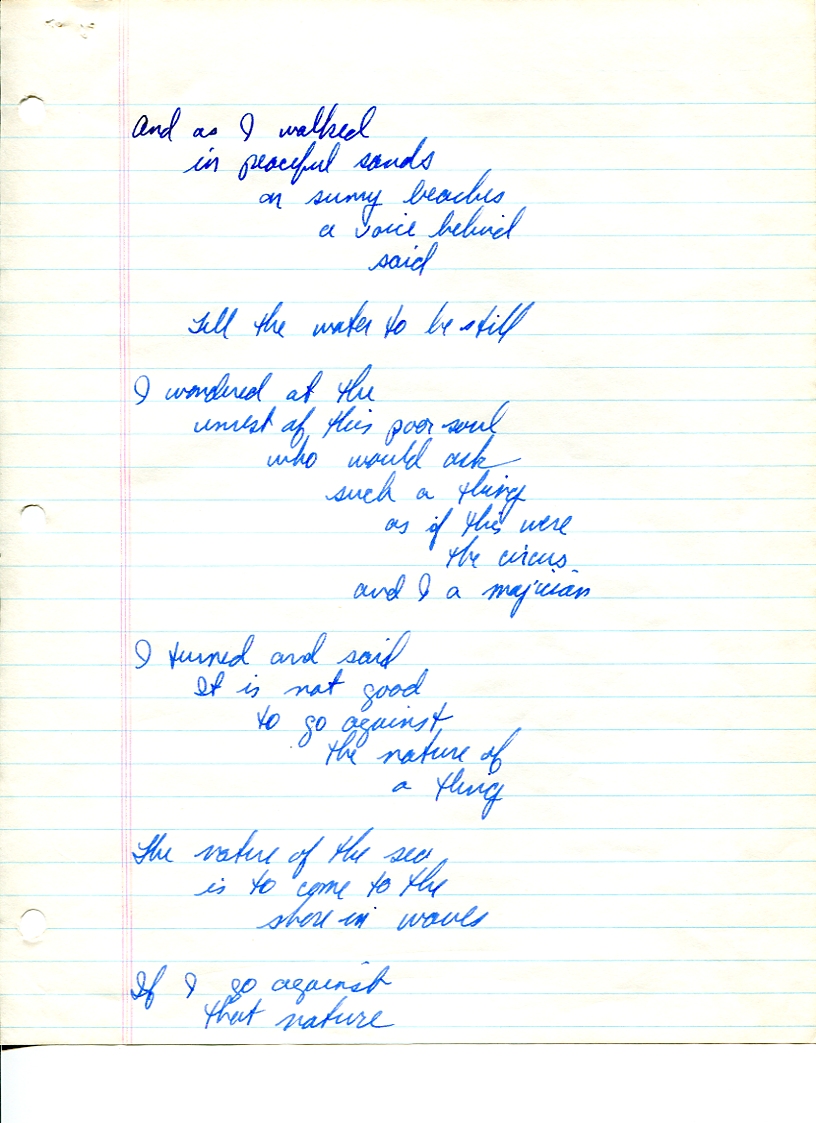 And as I walked
in peaceful sands
on sunny beaches
a voice behind
said
Tell the water to be still
I wondered at the
unrest of this poor soul
who would ask
such a thing
as if this were
the circus
and I a majician
I turned and said
It is not good
to go against
the nature of
a thing
The nature of the sea
is to come to the
shore in waves
If I go against
that nature